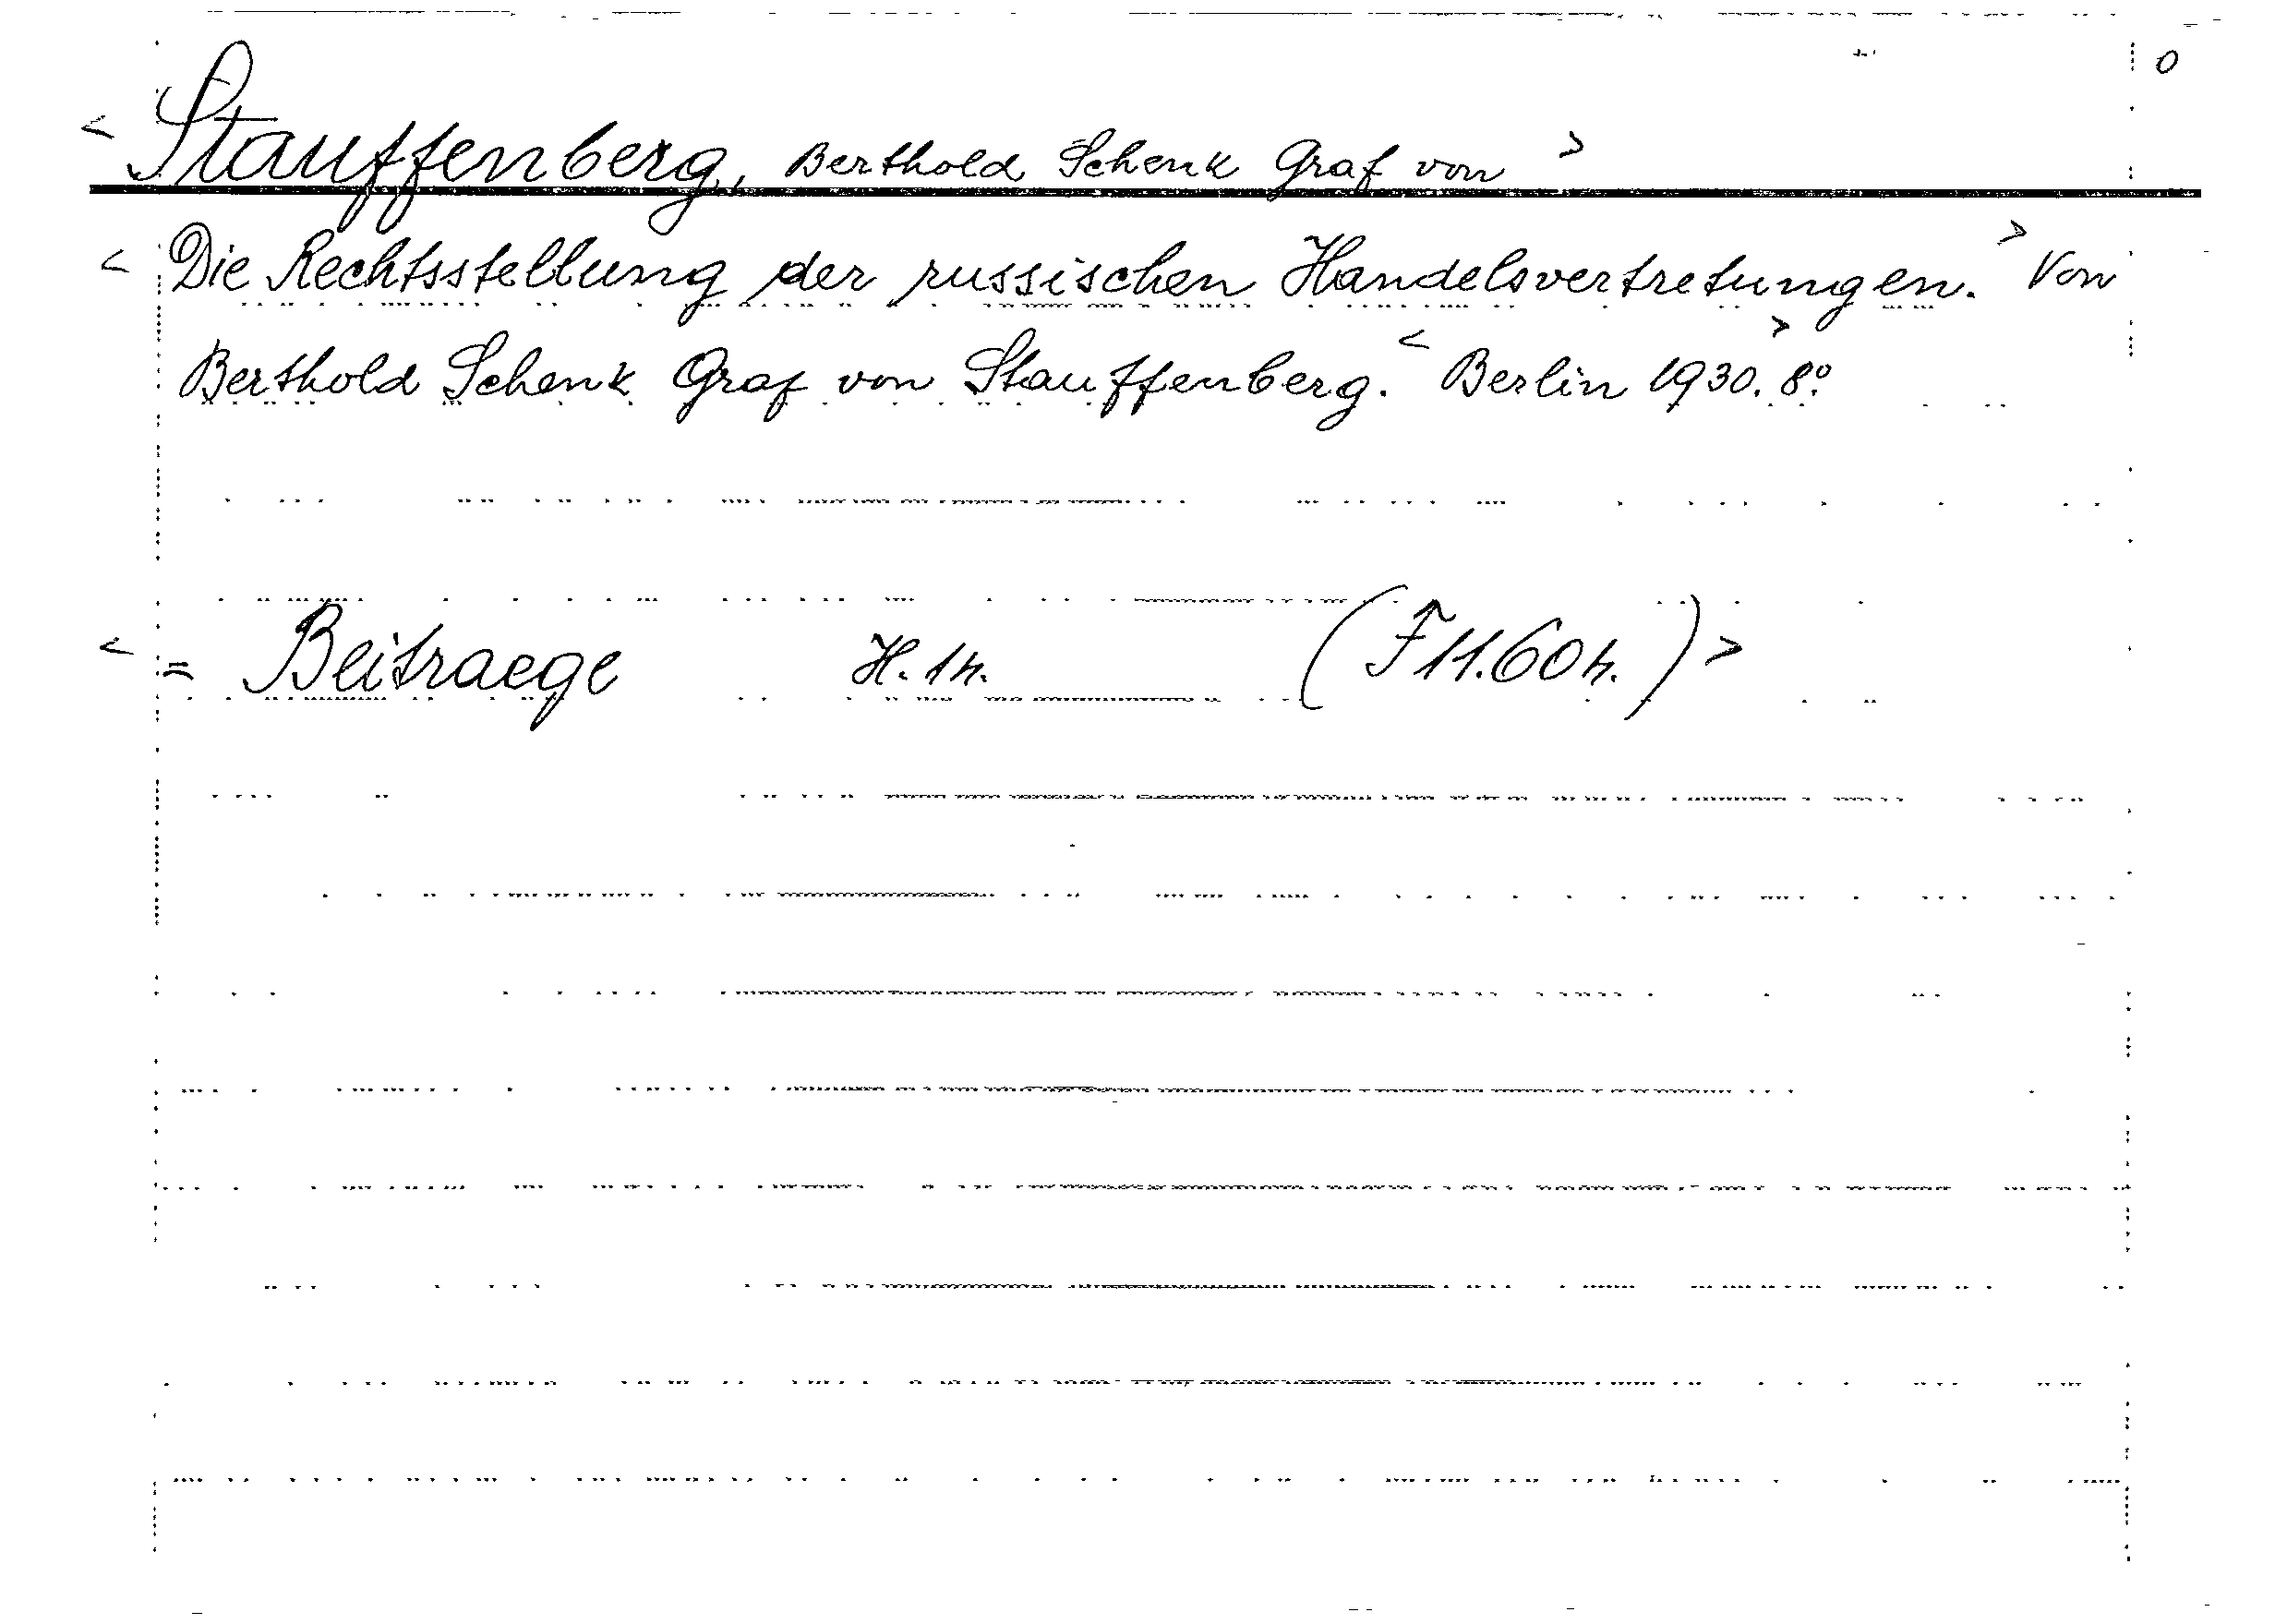 0
< Stauffenberg, Berthold Schenk Graf von >
< Die Rechtsstellung der russischen Handelsvertretungen. > Von
Berthold Schenk Graf von Stauffenberg. < Berlin 1930. > 8º.
< = Beitraege H. 14. (F 11.604.) >